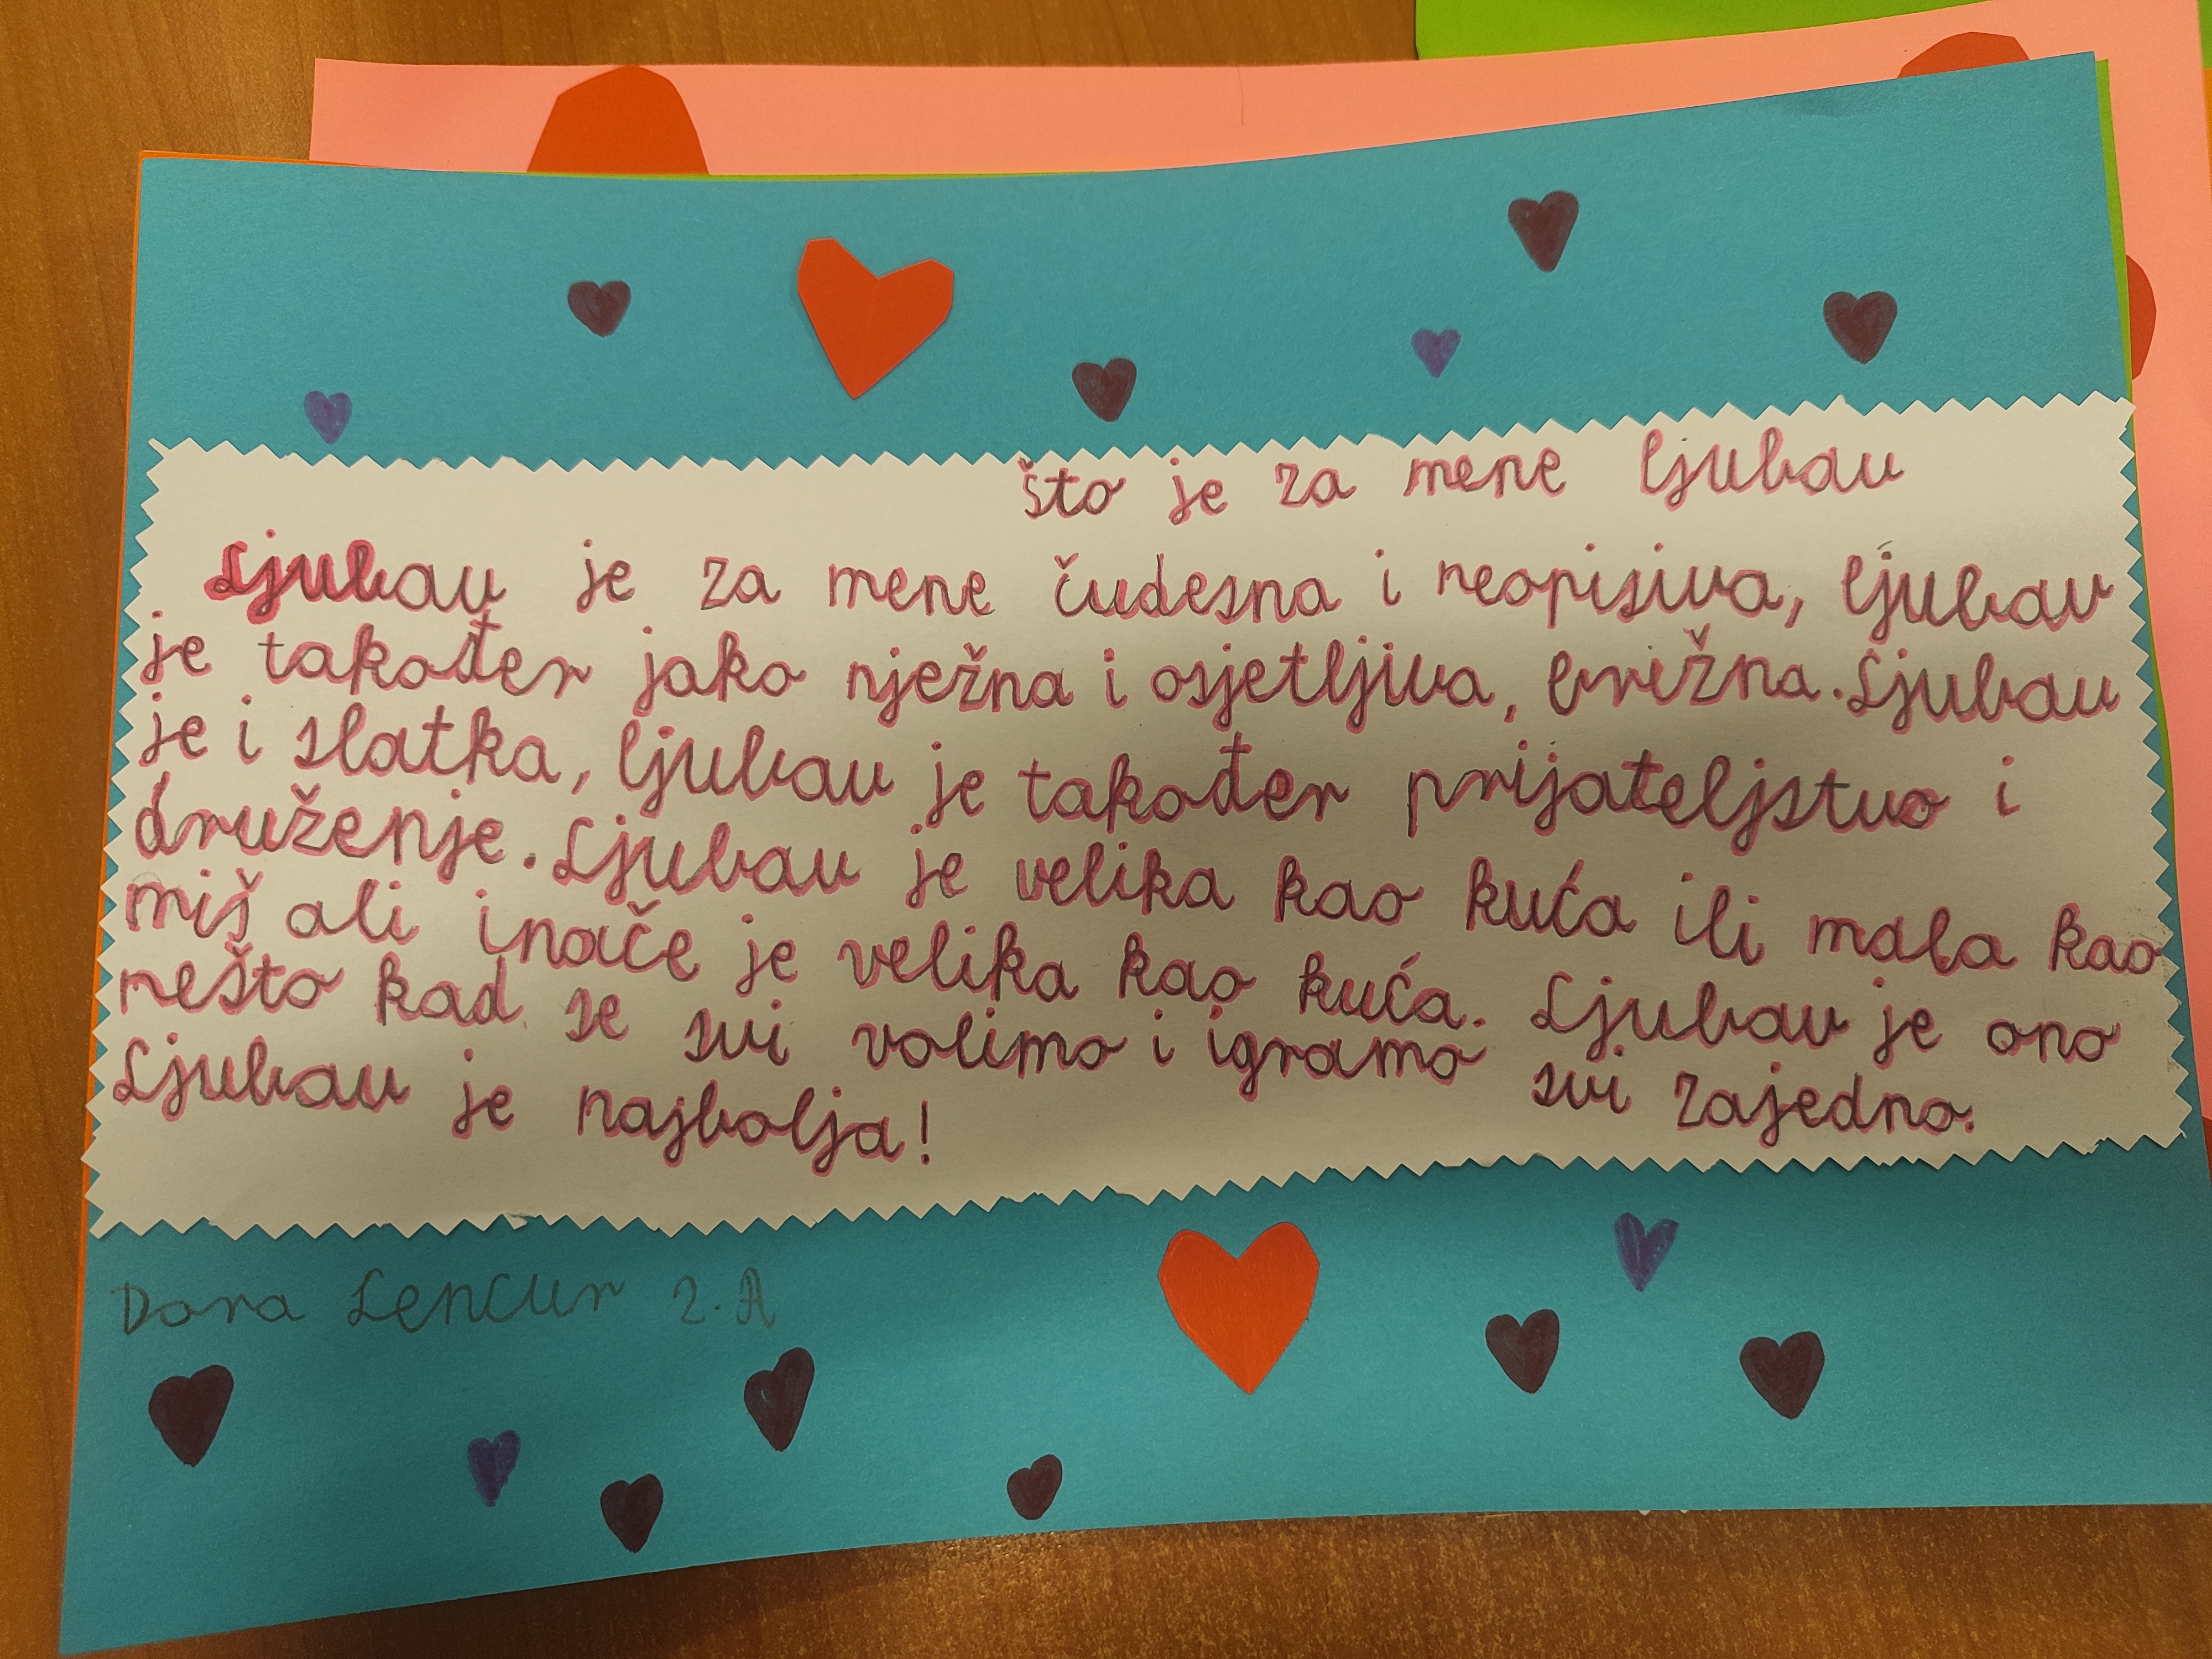 što je za mene ljubav
Ljubav je za mene čudesna i neopisiva, ljubav
je također jako nježna i osjetljiva, brižna. Ljubav
je i slatka, ljubav je također prijateljstvo i
druženje. Ljubav je velika kao kuća ili mala kao
miš ali inače je velika kao kuća. Ljubav je ono
nešto kad se svi volimo i igramo svi zajedno.
Ljubav je najbolja!
Dora Lencur 2. A